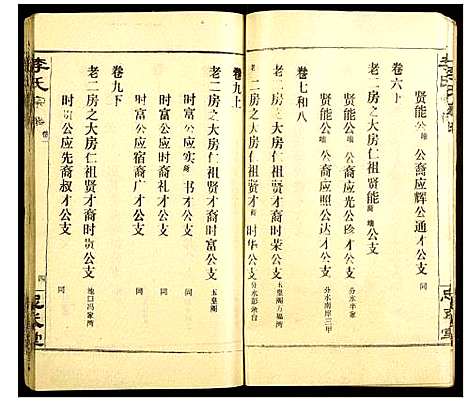 李氏
賢能公端 公裔应辉公通才公支 同
卷六下
老二房之大房仁祖賢能裔端公支
賢能公端 公裔应光公珍才公支 分水
賢能公端 公裔应照公达才公支 分水南岸三甲
卷七和八
老二房之大房仁祖賢才裔时荣公支 玉皇阁
老二房之大房仁祖賢才裔 时华公支 分水彭
卷九上
老二房之大房仁祖賢才裔时富公支 玉皇阁
时富公应实裔 书才公支 同
时富公应时裔礼才公支 同
时富公应宿裔广才公支 同
卷九下
老二房之大房仁祖賢才裔时贡公支 地口冯家湾
时贡公应先裔叔才公支 同
李氏
卷
四